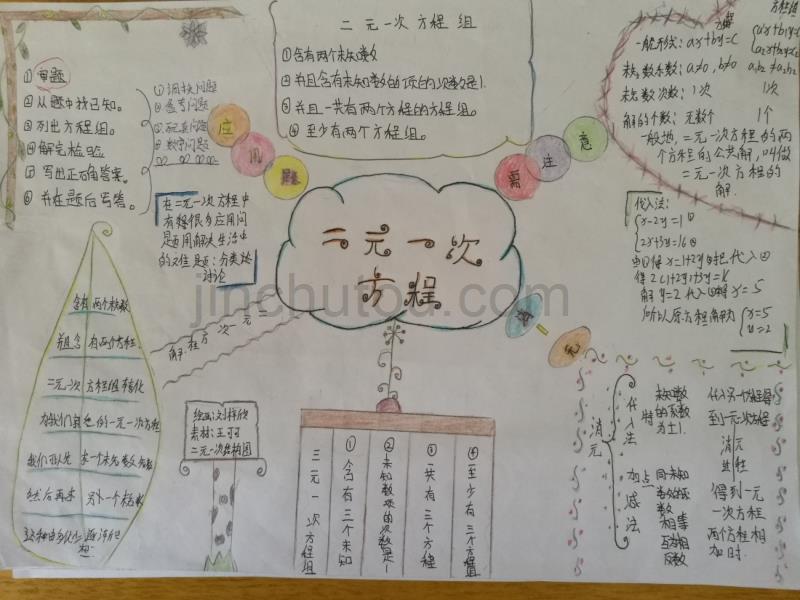 二元一次方程组
①含有两个未知数
②并且含有未知数的项的次数是1.
③并且一共有两个方程的方程组。
④至少有两个方程组。
①审题
②从题中找已知。
③列出方程组。
④解完检验
⑤写出正确答案。
⑥并在题后写答。
①调换问题
②盈亏问题
③配套问题
④数字问题
应用题
需注意
方程组
一般形式：ax+by=c
未知数系数：a≠0，b≠0
未知数次数：1次 1次
解的个数：无数个 1个
一般地，二元一次方程的两
个方程的公共解，叫做
二元一次方程的
解.
在二元一次方程中
有很多应用问
题用解决生活中
分类
讨论
二元一次
方程
代入法：
x-2y=1①
2x+3y=16②
由①得x=1+2y
解y=2代入
x=5
所以原方程解为
x=5
y=2
jinchutou.com
含有两个未知数
并且含有两个方程
二元一次方程组转化
为我们熟悉的一元一次方程
我们可以先求一个未知数
然后再求另一个未知数
消元
绘画：刘梓欣
素材：王可可
二元一次思维图
三元一次方程组
①含有三个未知
②未知数项的次数是1
③共有三个方程
④至少有三个方程组
消元
代入法
未知数
的系数
为±1.
代入另一方程得
到一元一次方程
消元
加减法
特点
同一未知
数的系
数
相等
互为相
反数
得到一元
一次方程
两个方程相
加时.